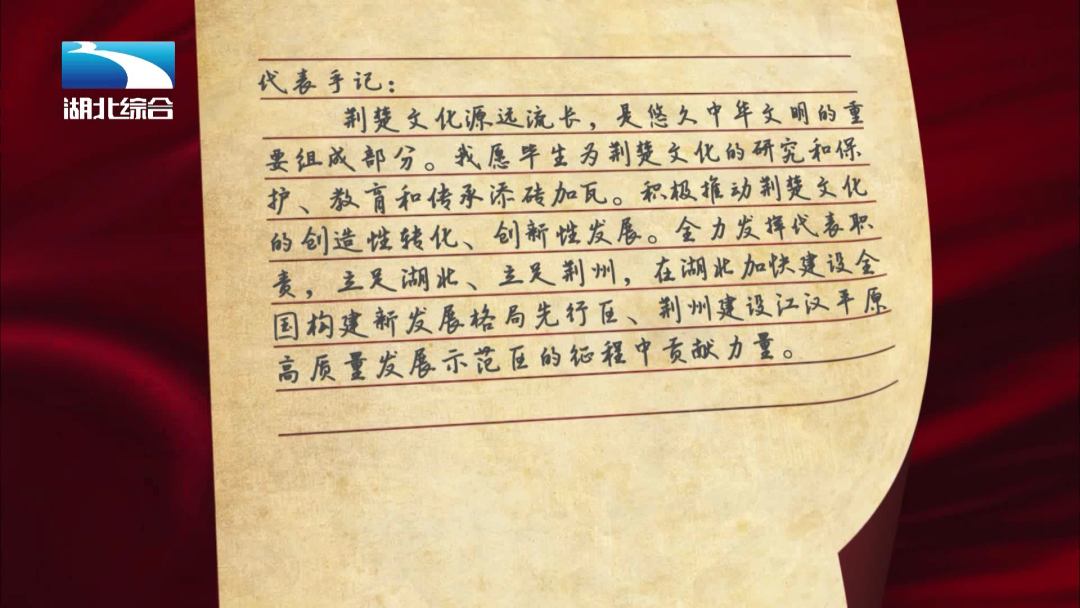 湖北综合
代表手记：
荆楚文化源远流长，是悠久中华文明的重
要组成部分。我愿毕生为荆楚文化的研究和保
护、教育和传承添砖加瓦。积极推动荆楚文化
的创造性转化、创新性发展。全力发挥代表职
责，立足湖北、立足荆州，在湖北加快建设全
国构建新发展格局先行区、荆州建设江汉平原
高质量发展示范区的征程中贡献力量。